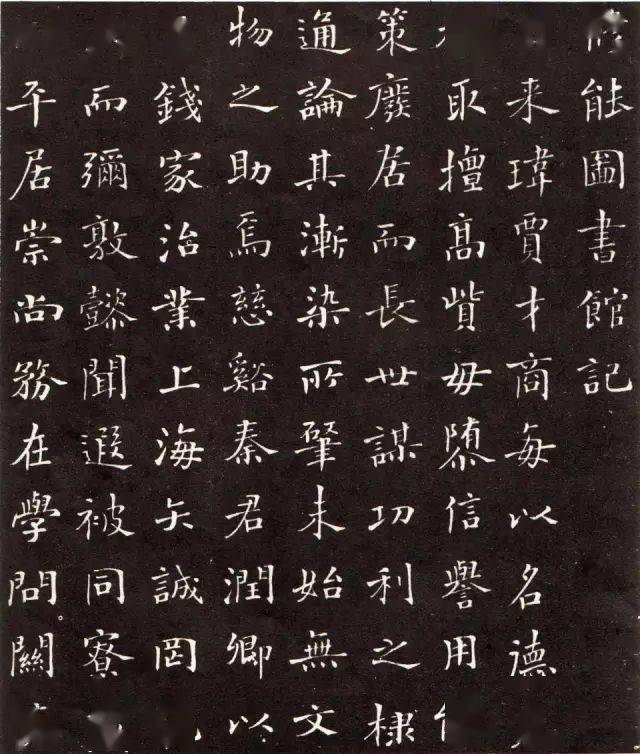 能圖書館記
来瑋賈才商每以名德
取擅高貲毋隳信譽用
策廢居而長世謀功利之棣
通論其漸染所肇未始無文
物之助焉慈谿秦君潤卿以
錢家治業上海矢誠罔
而彌敦懿聞遐被同寮
平居崇尚務在學問。關